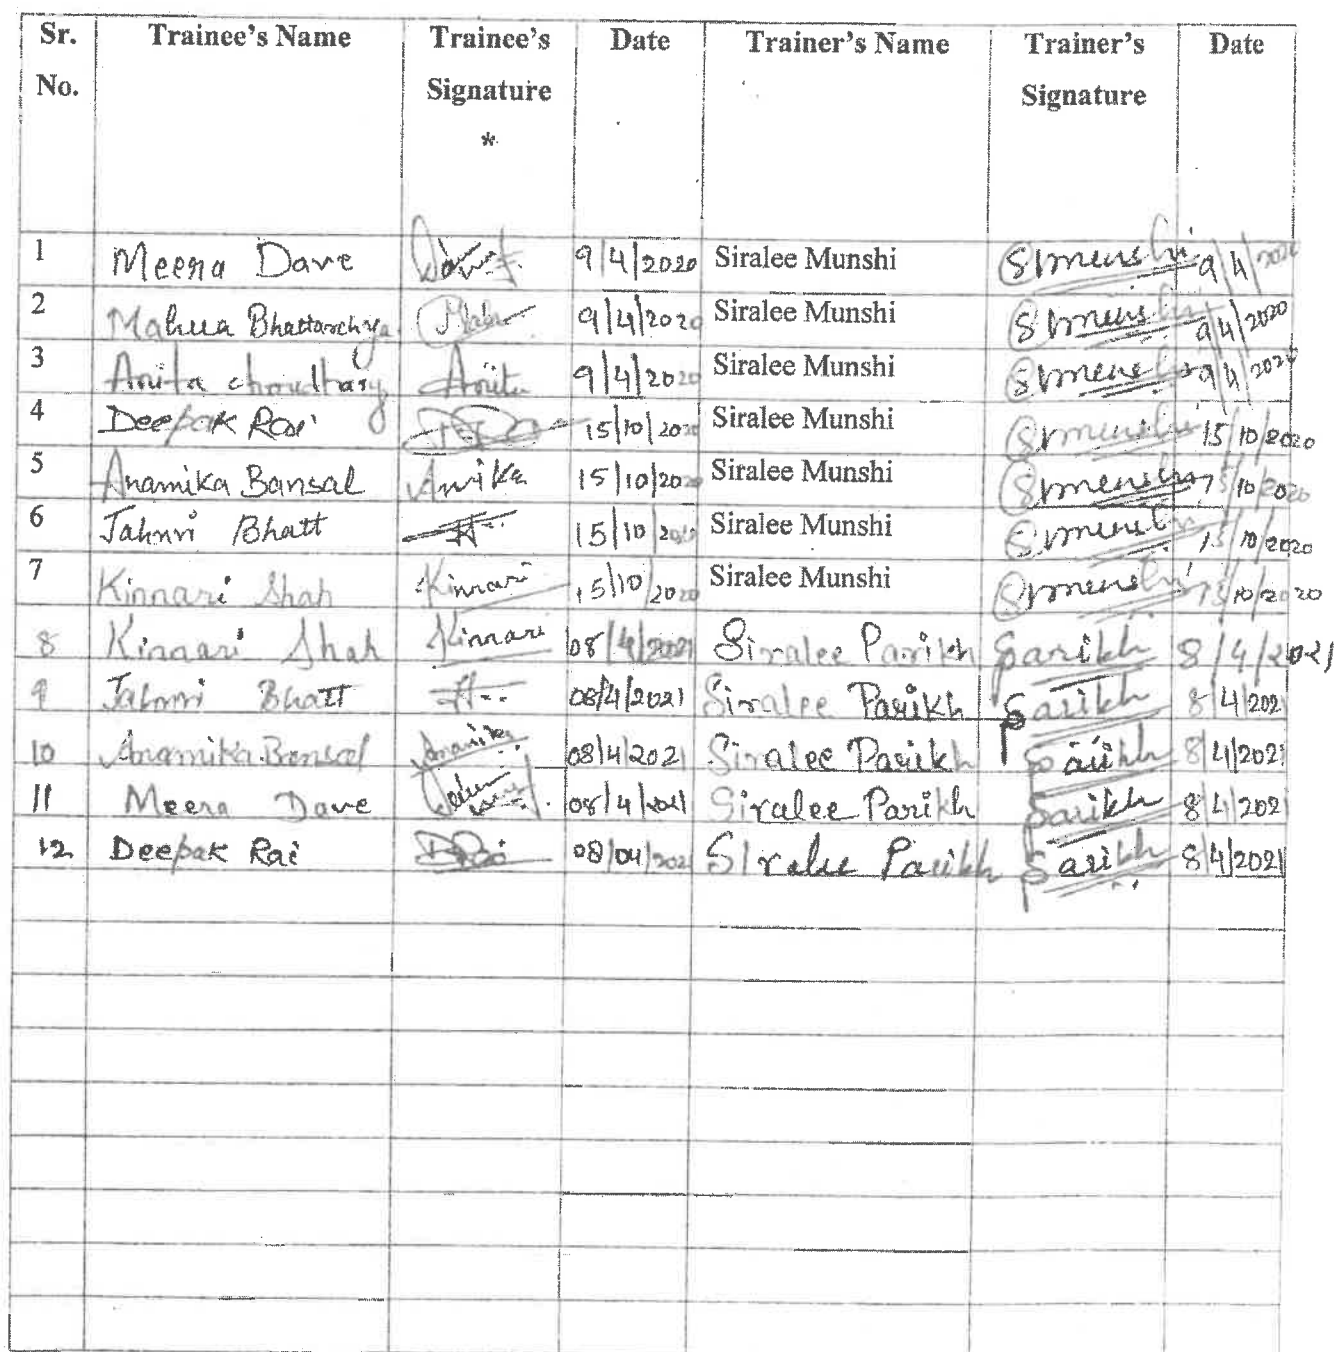 Sr. No. Trainee's Name Trainee's Signature * Date Trainer's Name Trainer's Signature Date
1 Meera Dave 9/4/2020 Siralee Munshi SMunshi 9/4/2020
2 Mahua Bhattarchya Mahu 9/4/2020 Siralee Munshi SMunshi 9/4/2020
3 Anita choudhary Anita 9/4/2020 Siralee Munshi SMunshi 9/4/2020
4 Deepak Rai 15/10/2020 Siralee Munshi SMunshi 15/10/2020
5 Anamika Bansal 15/10/2020 Siralee Munshi SMunshi 15/10/2020
6 Jahnvi Bhatt 15/10/2020 Siralee Munshi SMunshi 15/10/2020
7 Kinnari Shah Kinnari 15/10/2020 Siralee Munshi SMunshi 15/10/2020
8 Kinnari Shah Kinnari 08/4/2021 Siralee Parikh Sarikh 8/4/2021
9 Jahnvi Bhatt 08/4/2021 Siralee Parikh Sarikh 8/4/2021
10 Anamika Bansal Anamika 08/4/2021 Siralee Parikh Sarikh 8/4/2021
11 Meera Dave 08/4/2021 Siralee Parikh Sarikh 8/4/2021
12 Deepak Rai DRai 08/04/2021 Siralee Parikh Sarikh 8/4/2021